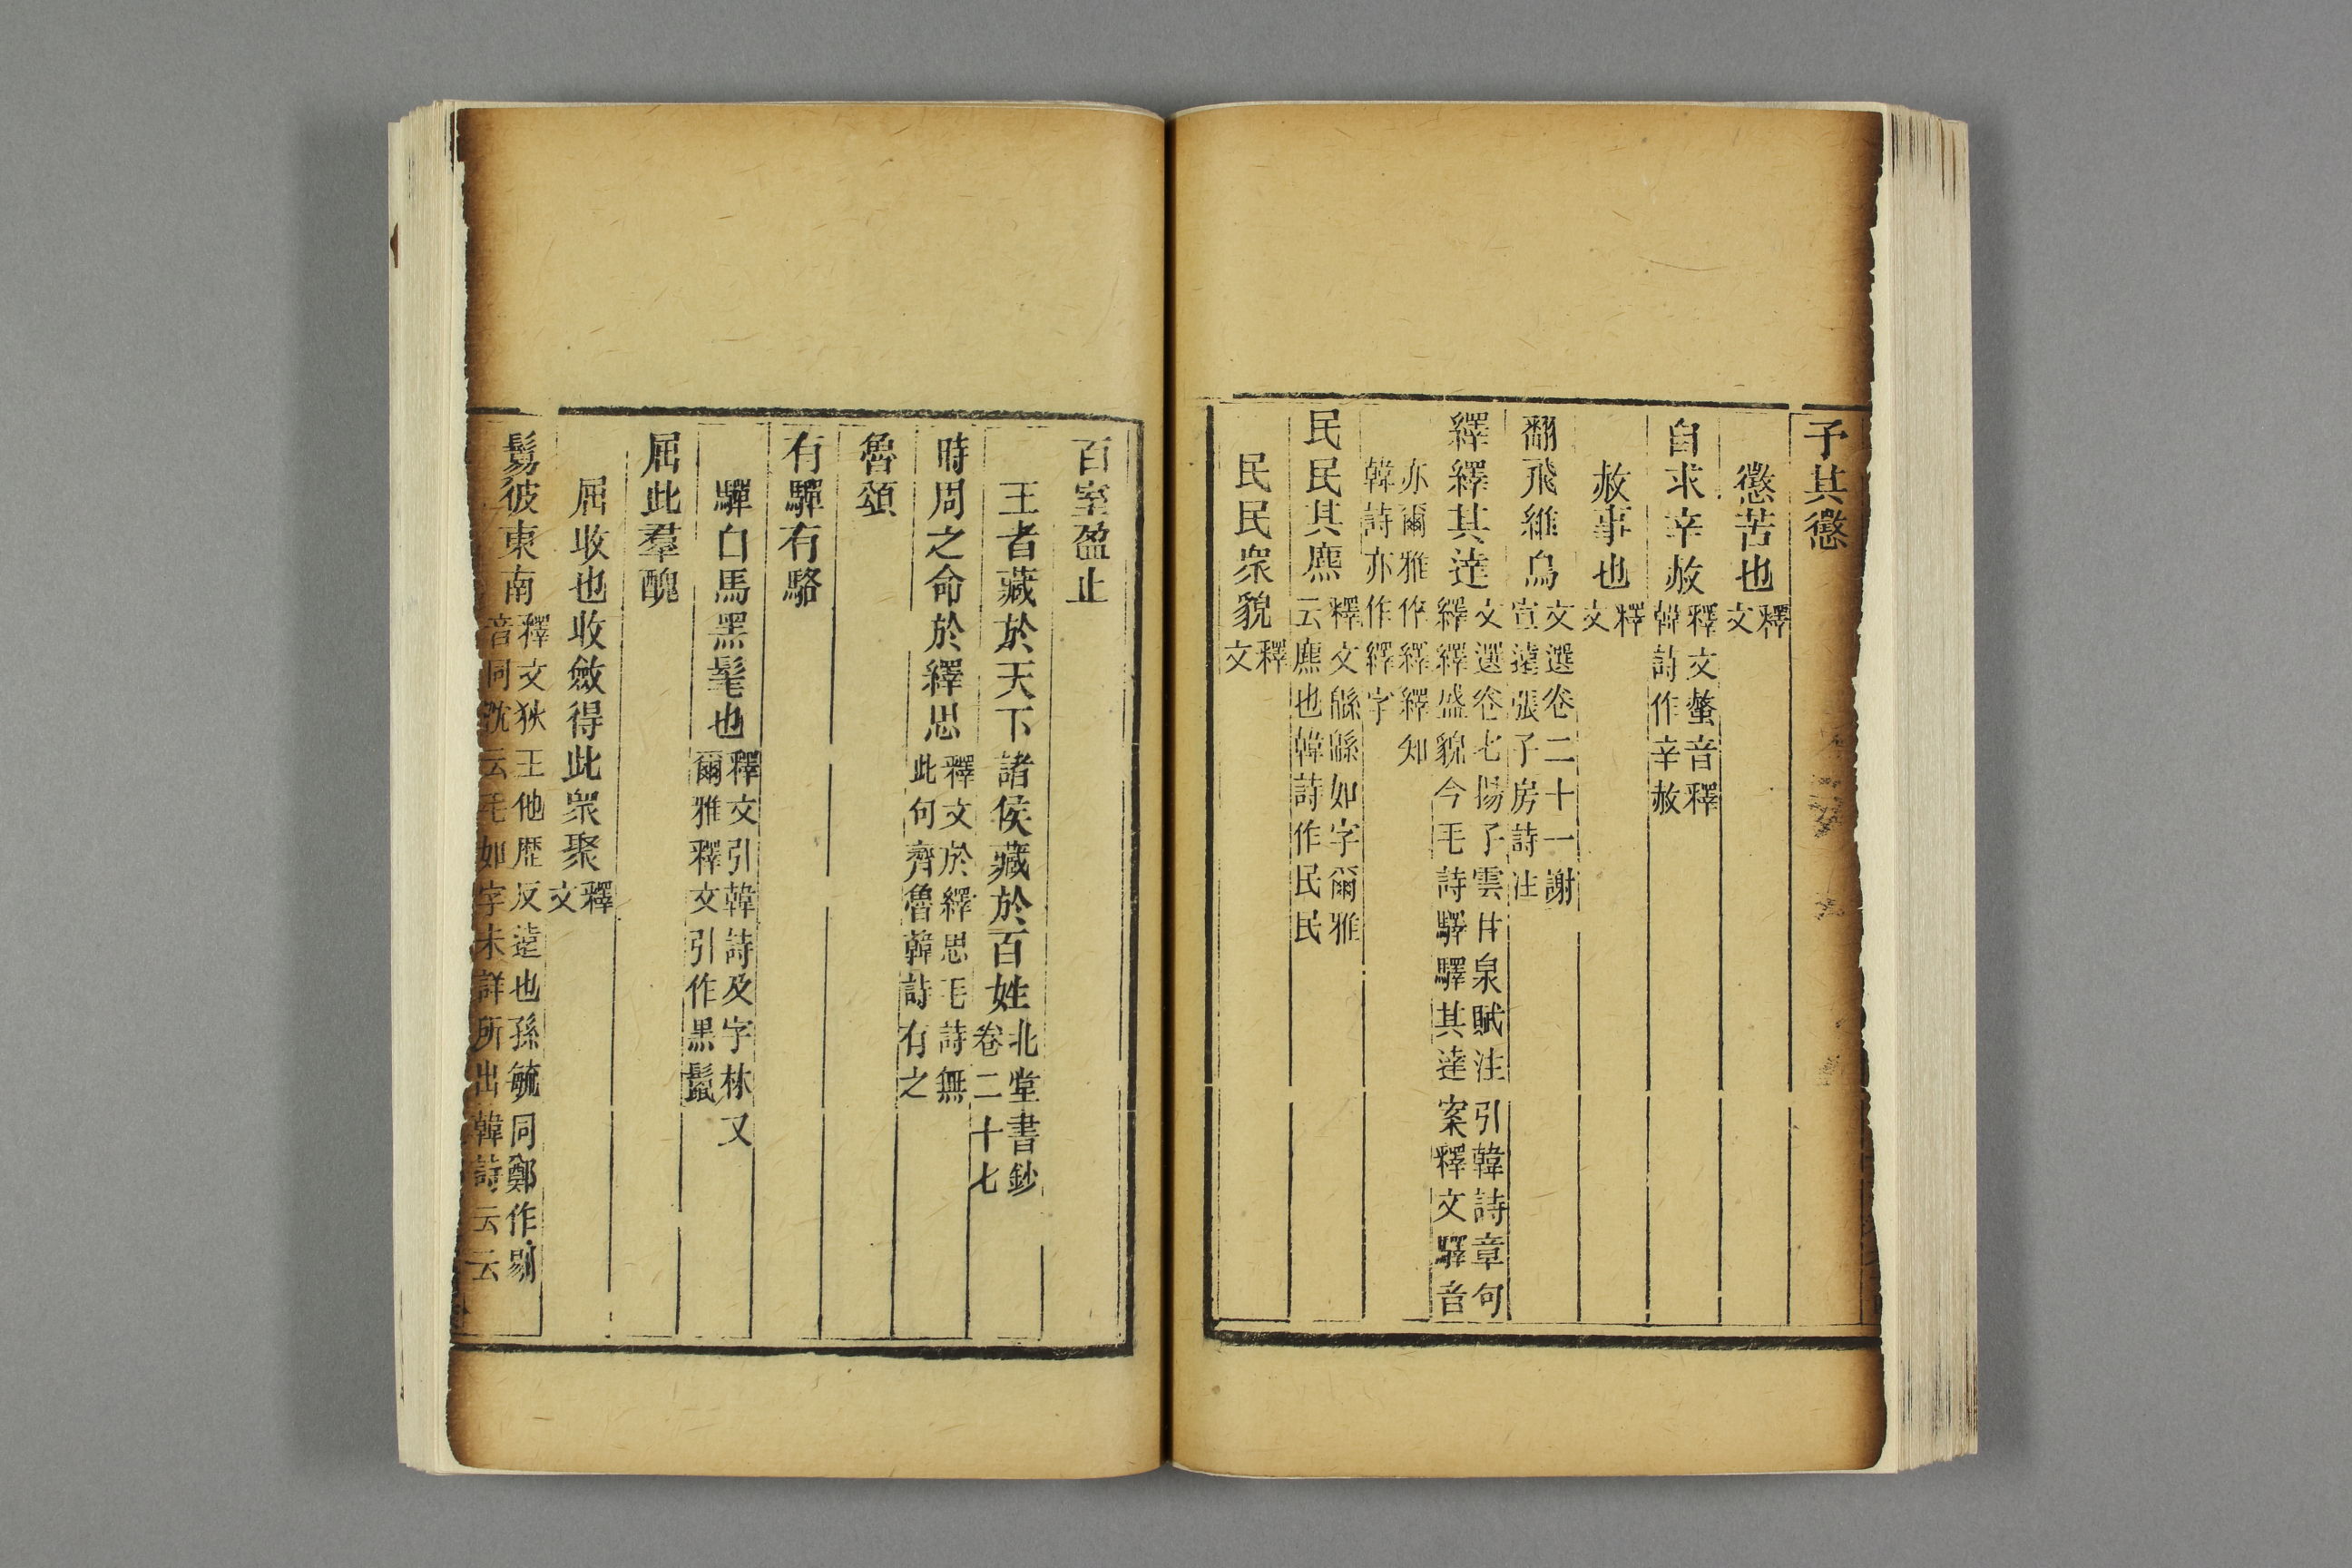 予其懲
懲苦也釋文
自求辛赦釋文螫音釋韓詩作辛赦
赦事也釋文
翻飛維鳥文選卷二十一謝宣遠張子房詩注
繹繹其達文選卷七揚子雲甘泉賦注引韓詩章句繹繹盛貌今毛詩驛驛其達案釋文驛音
亦爾雅作繹繹知韓詩亦作繹字
民民其麃釋文緜緜如字爾雅云麃也韓詩作民民
民民衆貌釋文
百室盈止
王者藏於天下諸侯藏於百姓北堂書鈔卷二十七
時周之命於繹思釋文於繹思毛詩無此句齊魯韓詩有之
魯頌
有驒有駱
驒白馬黑髦也釋文引韓詩及字林又爾雅釋文引作黑鬣
屈此羣醜
屈收也收斂得此衆聚釋文
鬄彼東南釋文狄王他歷反遠也孫毓同鄭作剔音同沈云毛如字未詳所出韓詩云云